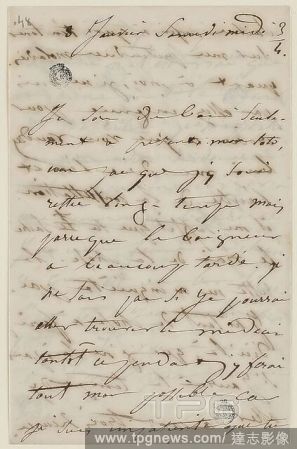 48
8 Janvier Samedi midi 3/4
Je sors du bain seule-
ment à présent mon toto,
non que j'y sois
restée long-temps mais
parce que le baigneur
a beaucoup tardé. je
ne sais pas si je pourrai
aller trouver le médecin
tantôt cependant j'y ferai
tout mon possible car
je suis impatiente que tu
TPG
www.tpgnews.com / 達志影像